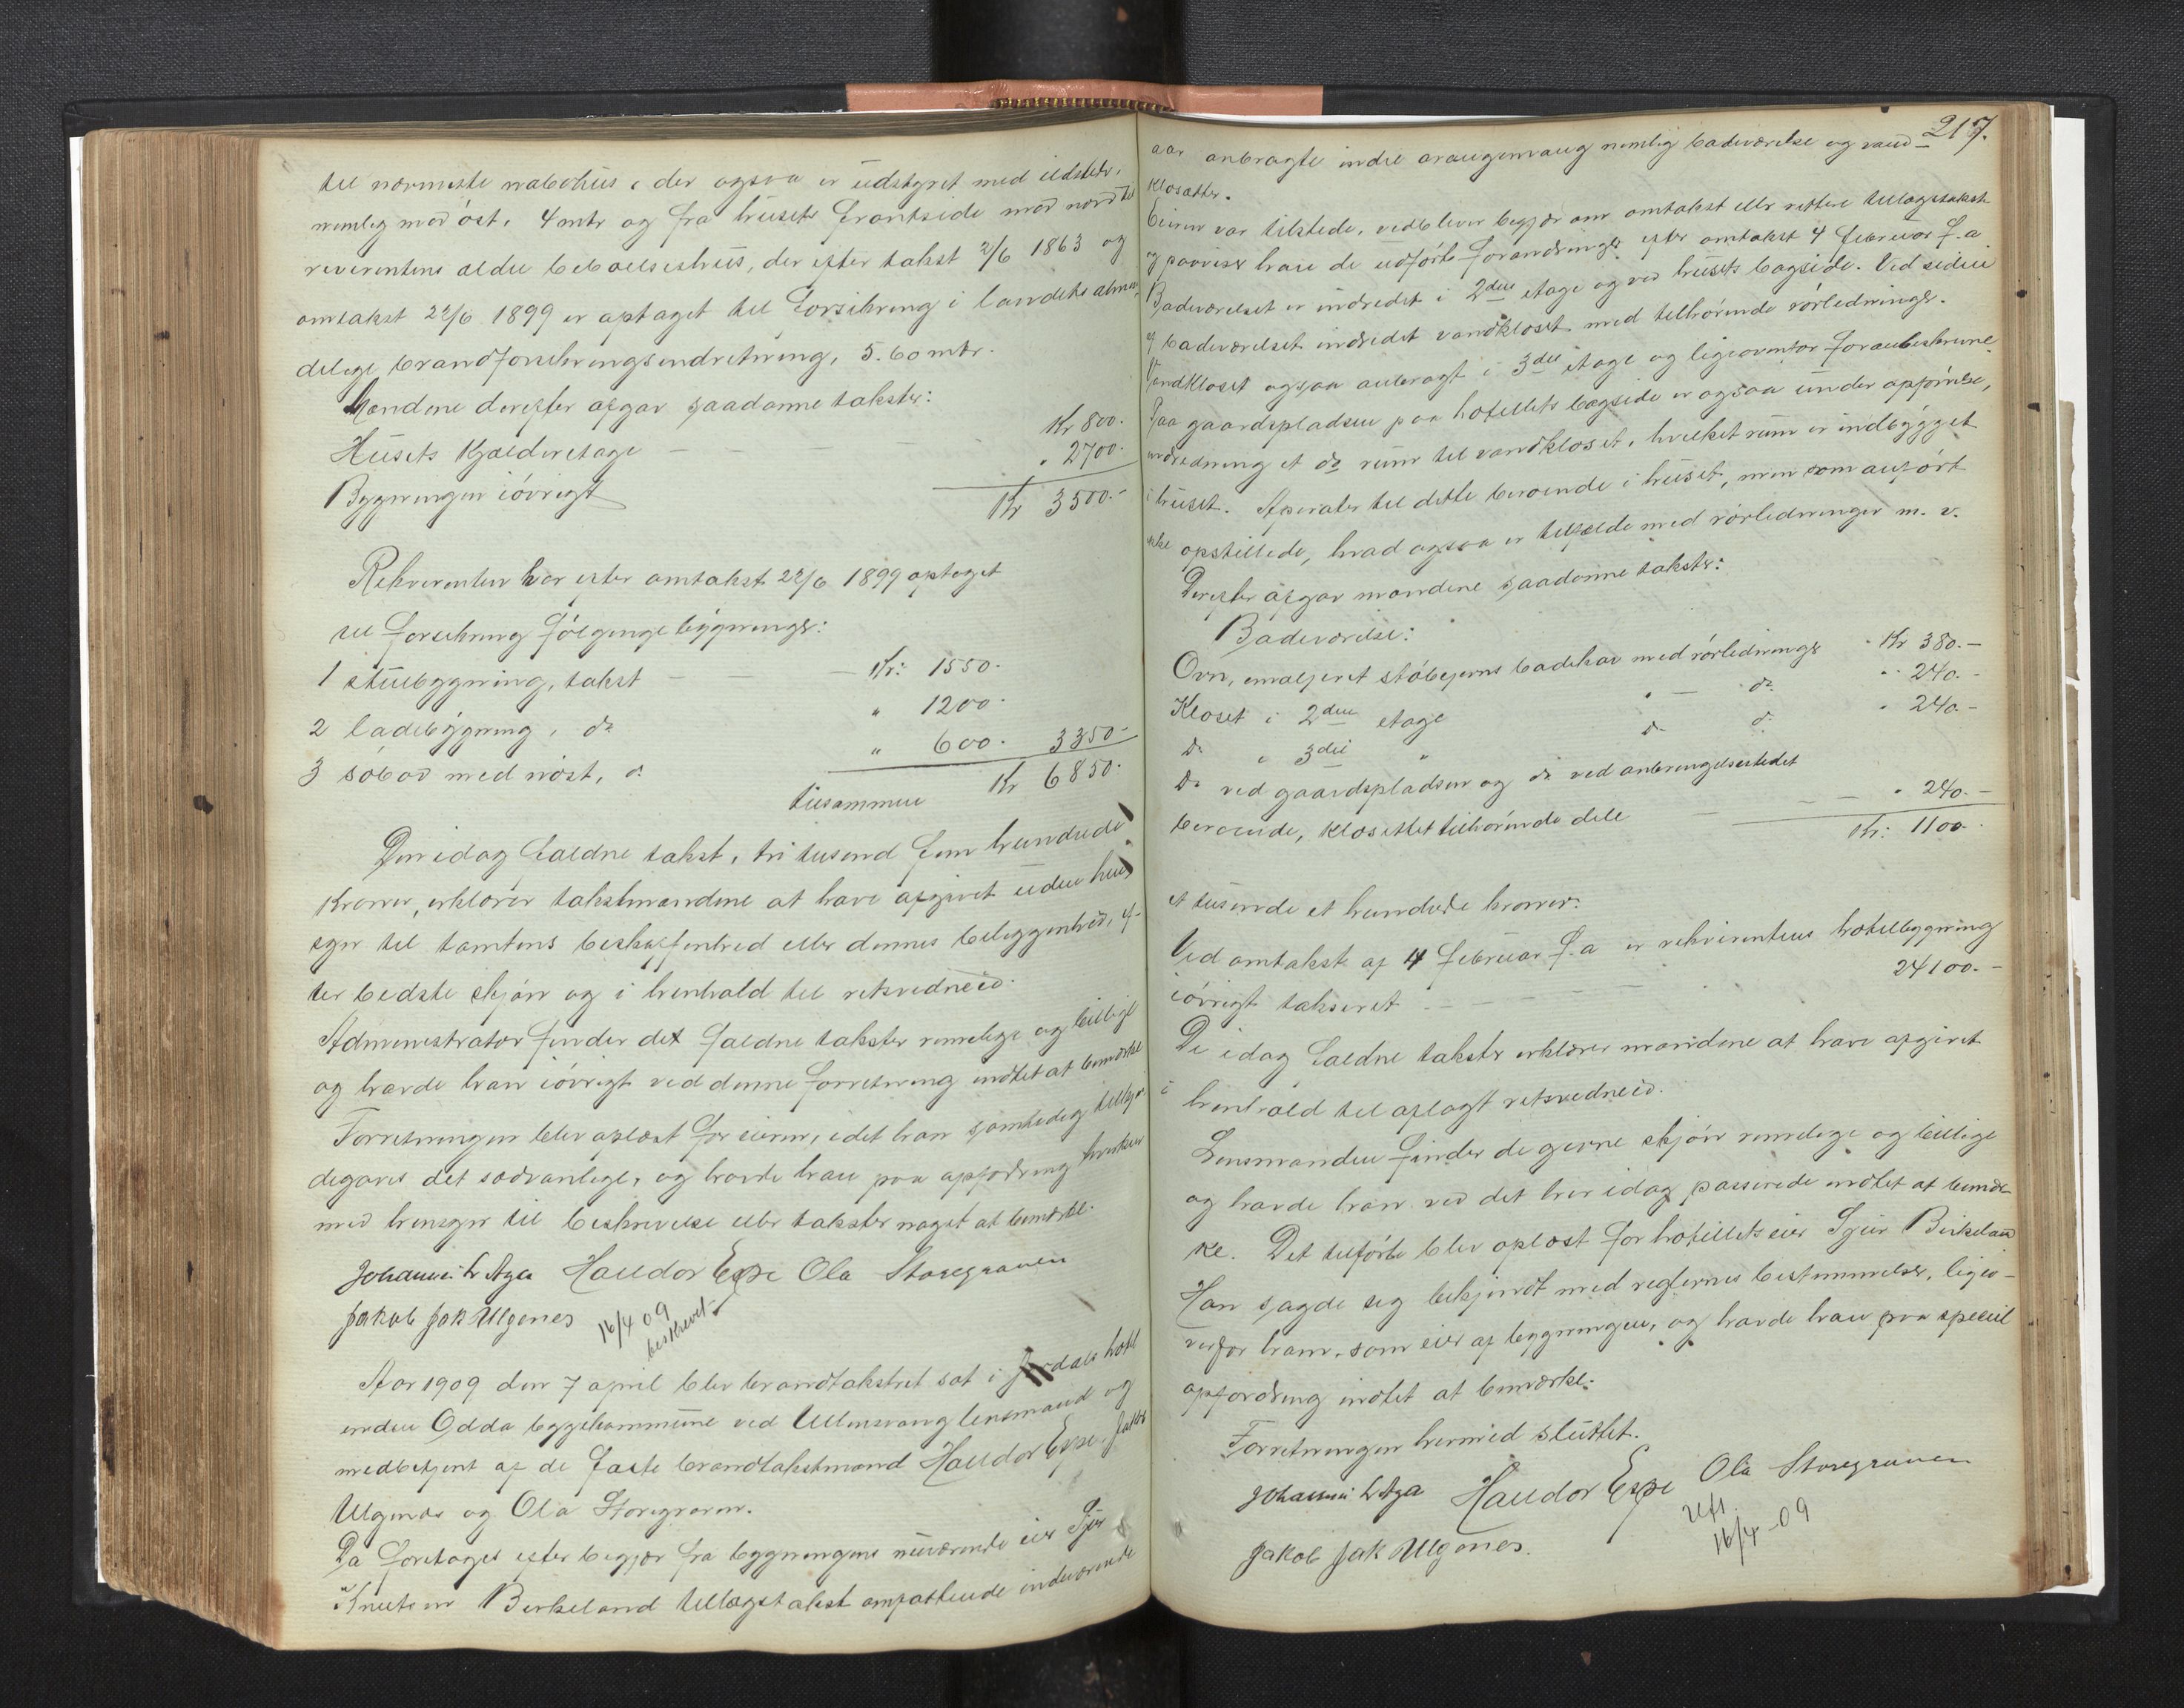 til nærmeste nabohus, der ogsaa er udstyret med ildsteder,
nemlig mod öst, 4 mtr og fra husets frontside mod nord til
reverentens ældre beboelseshus, der efter takst 2/6 1863 og
omtakst 22/6 1899 er optaget til forsikring i landets almin-
delige brandforsikringsindretning, 5.60 mtr.
Mændene derefter afgav saadanne takster:
Husets Kjælderetage — — Kr 800.
Bygningen iövrigt " 2700.
Kr 3500.-
Rekvirenten har efter omtakst 22/6 1899 optaget
til forsikring fölgende bygninger:
1 stuebygning, takst — — Kr: 1550.
2 ladebygning, do " 1200.
3 söbod med nöst, do " 600. 3350.-
tilsammen Kr 6850.-
Den idag faldne takst, tre tusend fem hundrede
Kroner, erklærer takstmændene at have afgivet uden hen-
syn til tomtens beskaffenhed eller dennes beliggenhed, ef-
ter bedste skjön og i henhold til retsvidneed.
Administrator finder det faldne takster rimelige og billige
og havde han iövrigt ved denne forretning indtet at bemærke
Forretningen blev oplæst for eieren, idet han samtidig tilkjen-
degaves det sædvanlige, og havde han paa opfordring hverken
med hensyn til beskrivelse eller takster noget at bemærke.
Johannes L Aga Haldor Espe Ola Storegraven
Jakob Jak Ulgenes
16/4 09
beskrevet
Aar 1909 den 7 april blev brandtakstret sat i Jordals hotel
inden Odda bygskommune ved Ullensvang lensmand og
medbetjent af de faste brandtakstmænd Haldor Espe, Jakob
Ulgenes og Ola Storegraven.
Da foretages efter begjær fra bygningens nuværende eier Sjur
Knutsen Birkeland tillægstakst omfattende indeværende
217.
aar anbragte indre arangemang nemlig badeværelse og vand-
klosetter.
Eieren var tilstede, vedbliver begjær om omtakst eller rettere tillægstakst
og paaviser han de udförte forandringer efter omtakst 4 februar f.a.
Badeværelset er indredet i 2den etage og ved husets bagside. Ved siden
af badeværelset indredet vandkloset med tilhörende rörledninger.
Vandkloset ogsaa anbragt i 3die etage og ligeoventor foranbeskrevne
Paa gaardspladsen paa hotellets bagside er ogsaa under opförelse,
indredning et do rum til vandkloset, hvilket rum er indbygget
i huset. Aperater til dette beroende i huset, men som anfört
ikke opstillede, hvad ogsaa er tilfælde med rörledninger m. v.
Derefter afgav mændene saadanne takster:
Badeværelse:
Ovn, emaljeret stöbejerns badekar med rörledninger " Kr 380.-
Kloset i 2den etage " — do " 240.-
Do " 3die " do do " 240.-
Do ved gaardspladsen og do ved anbringelsestedet
beroende, klosettet tilhörende dele — — — " 240.-
Kr: 1100.-
et tusende et hundrede kroner.
Ved omtakst af 4 februar f.a. er rekvirentens hotelbygning
iövrigt takseret — — — — 24100.-
De idag faldne takster erklærer mændene at have afgivet
i henhold til aflagt retsvidneed.
Lensmanden finder de givne skjön rimelige og billige
og havde han ved det her idag passerede indtet at bemær-
ke. Det tilförte blev oplæst for hotellets eier Sjur Birkeland
Han sagde sig bekjendt med reglernes bestemmelser, ligeo-
verfor ham, som eier af bygningen, og havde han paa speciel
opfordring indtet at bemærke.
Forretningen hermed sluttet.
Johannes L Aga Haldor Espe Ola Storegraven
Jakob Jak Ulgenes.
Utft.
16/4-09